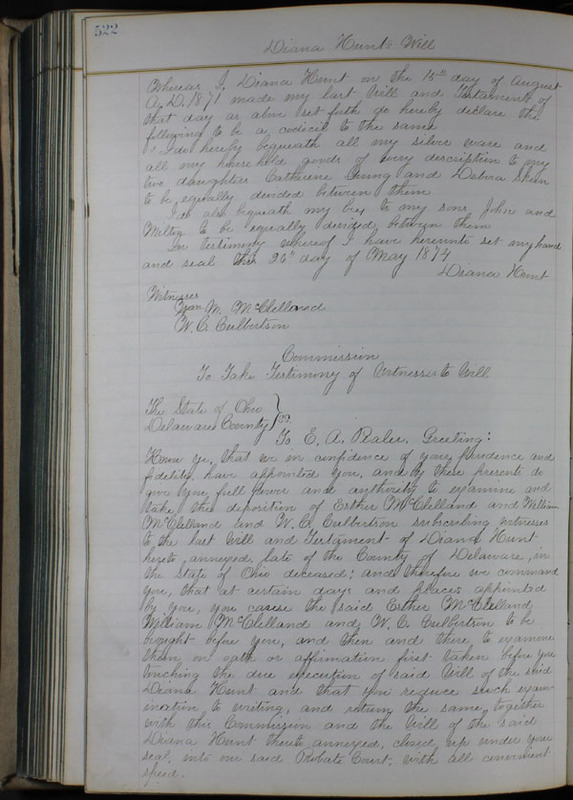 522
Diana Hunt's Will
Whereas I, Diana Hunt on the 15th day of August
A.D. 1871 made my last Will and Testament of
that day as above set forth do hereby declare the
following to be a codicil to the same
I do hereby bequeath all my silver ware and
all my household goods of every description to my
two daughters Catherine and Debora
to be equally divided between them
I do also bequeath my to my sons John and
Milton to be equally divided between them
In testimony whereof I have hereunto set my hand
and seal this 20th day of May 1874
Diana Hunt
Witnesses
Wm. M. McClelland
W. C. Culbertson
Commission
To Take Testimony of Witnesses to Will
The State of Ohio
Delaware County } ss.
To E. A. Greeting:
Know ye, that we in confidence of your prudence and
fidelity, have appointed you, and by these presents do
give you full power and authority to examine and
take the deposition of Esther McClelland and William
McClelland and W. C. Culbertson subscribing witnesses
to the last Will and Testament of Diana Hunt
hereto annexed, late of the County of Delaware, in
the State of Ohio deceased; and therefore we command
you, that at certain days and places appointed
by you, you cause the said Esther McClelland
William McClelland and W. C. Culbertson to be
brought before you, and then and there, to examine
them on oath or affirmation first taken before you
touching the due execution of said Will of the said
Diana Hunt and that you reduce such exam-
ination to writing, and return the same, together
with this Commission and the Will of the said
Diana Hunt thereto annexed, closed up under your
seal, into our said Probate Court, with all convenient
speed.